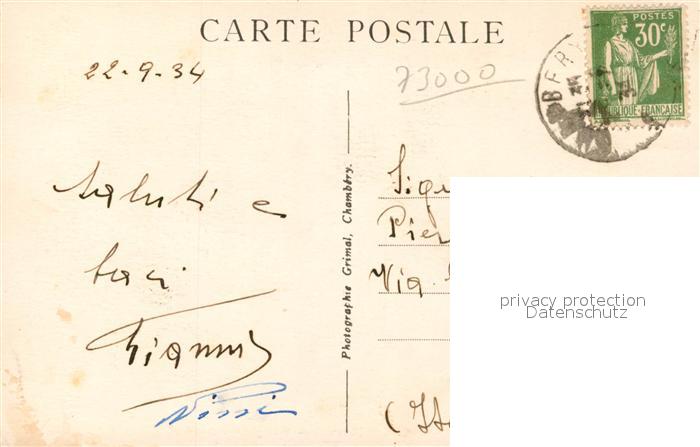 CARTE POSTALE
22-9-34
73000
POSTES
30c
RÉPUBLIQUE-FRANÇAISE
BER
Saluti e
baci
Photographie Grimal, Chambéry.
Via
privacy protection
Datenschutz